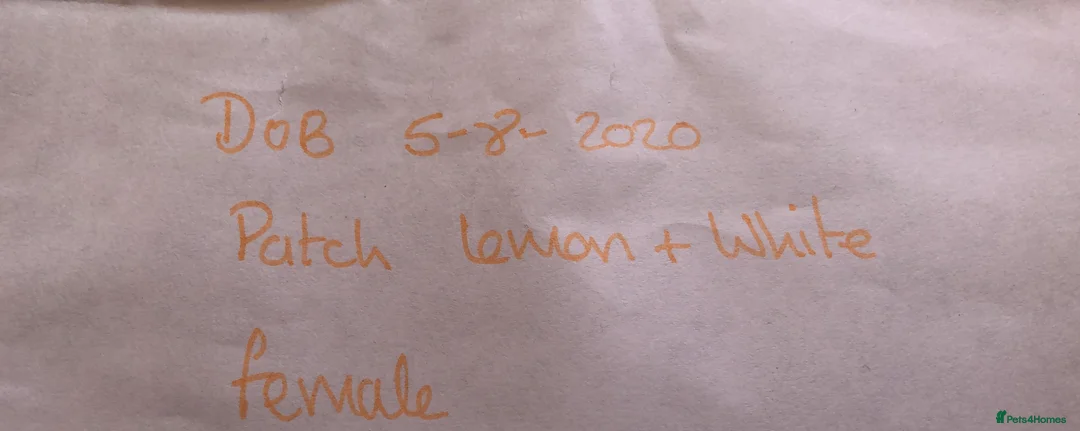 DOB 5-8-2020
Patch lemon + White
female
Pets4Homes